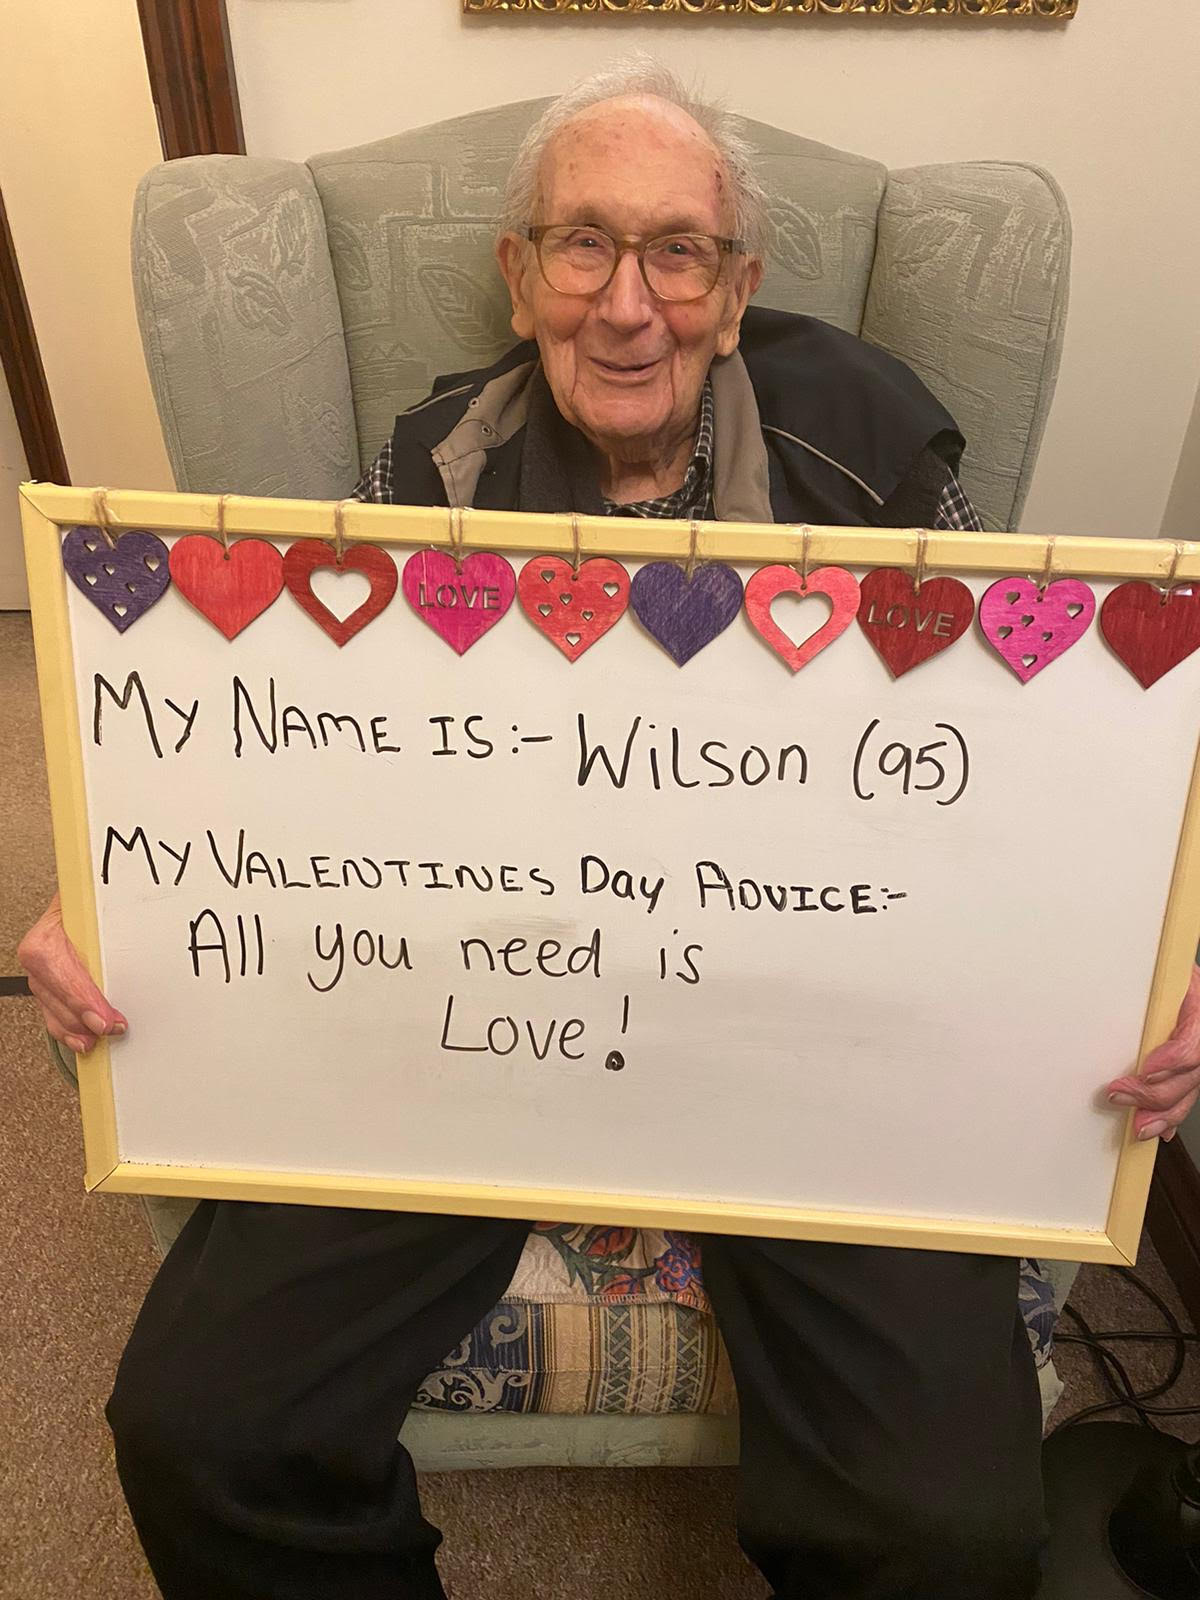 LOVE
LOVE
MY NAME IS:- Wilson (95)
MY VALENTINES Day ADVICE:-
All you need is
Love!